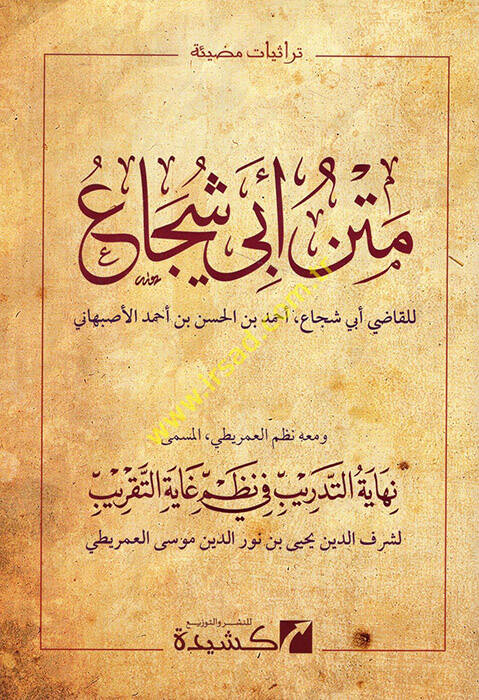 تراثيات مضيئة
مَتْنُ أَبِي شُجَاعٍ
للقاضي أبي شجاع، أحمد بن الحسن بن أحمد الأصبهاني
www.irsad.com.tr
ومعه نظم العمريطي، المسمى
نِهَايَةُ التَّدْرِيبِ فِي نَظْمِ غَايَةِ التَّقْرِيبِ
لشرف الدين يحيى بن نور الدين موسى العمريطي
للنشر والتوزيع
كشيدة